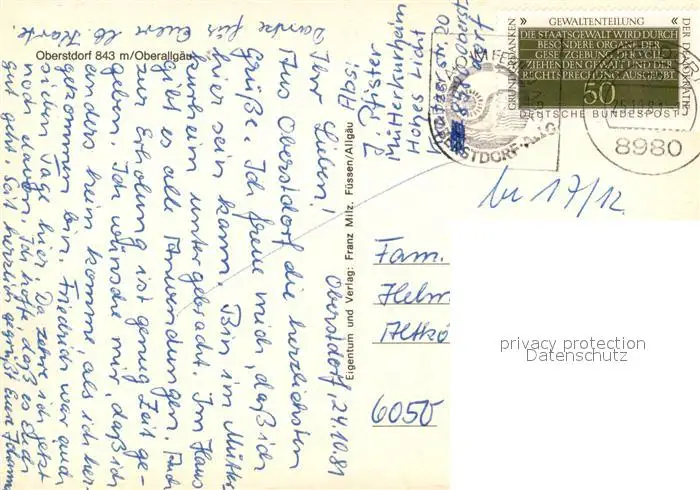 Oberstdorf 843 m/Oberallgäu
Danke für Eure lb. Karte.
Oberstdorf, 24.10.81
Ihr Lieben!
Aus Oberstdorf die herzlichsten
Grüße. Ich freue mich, daß ich
hier sein kann. Bin im Mütter-
kurheim untergebracht. Im Haus
gibt es alle Anwendungen. Auch
zur Erholung ist genug Zeit ge-
geben. Ich wünsche mir, daß ich
anders heim komme, als ich her-
gekommen bin. Friedrich war auch
sieben Tage hier. Da zehre ich jetzt
noch davon. Ich hoffe, daß es Euch
gut geht. Seit herzlich gegrüßt Eure
Eigentum und Verlag: Franz Milz, Füssen/Allgäu
Abs:
Mütterkurheim
Hohes Licht
20
» GEWALTENTEILUNG «
DIE STAATSGEWALT WIRD DURCH
BESONDERE ORGANE DER
GESETZGEBUNG, DER VOLL-
ZIEHENDEN GEWALT UND DER
RECHTSPRECHUNG AUSGEÜBT
50
DEUTSCHE BUNDESPOST
GRUNDGEDANKEN
DER DEMOKRATIE
OBERSTDORF-ALLG
8980
br 17/12.
Fam.
Helm
Altkö
6050
privacy protection
Datenschutz